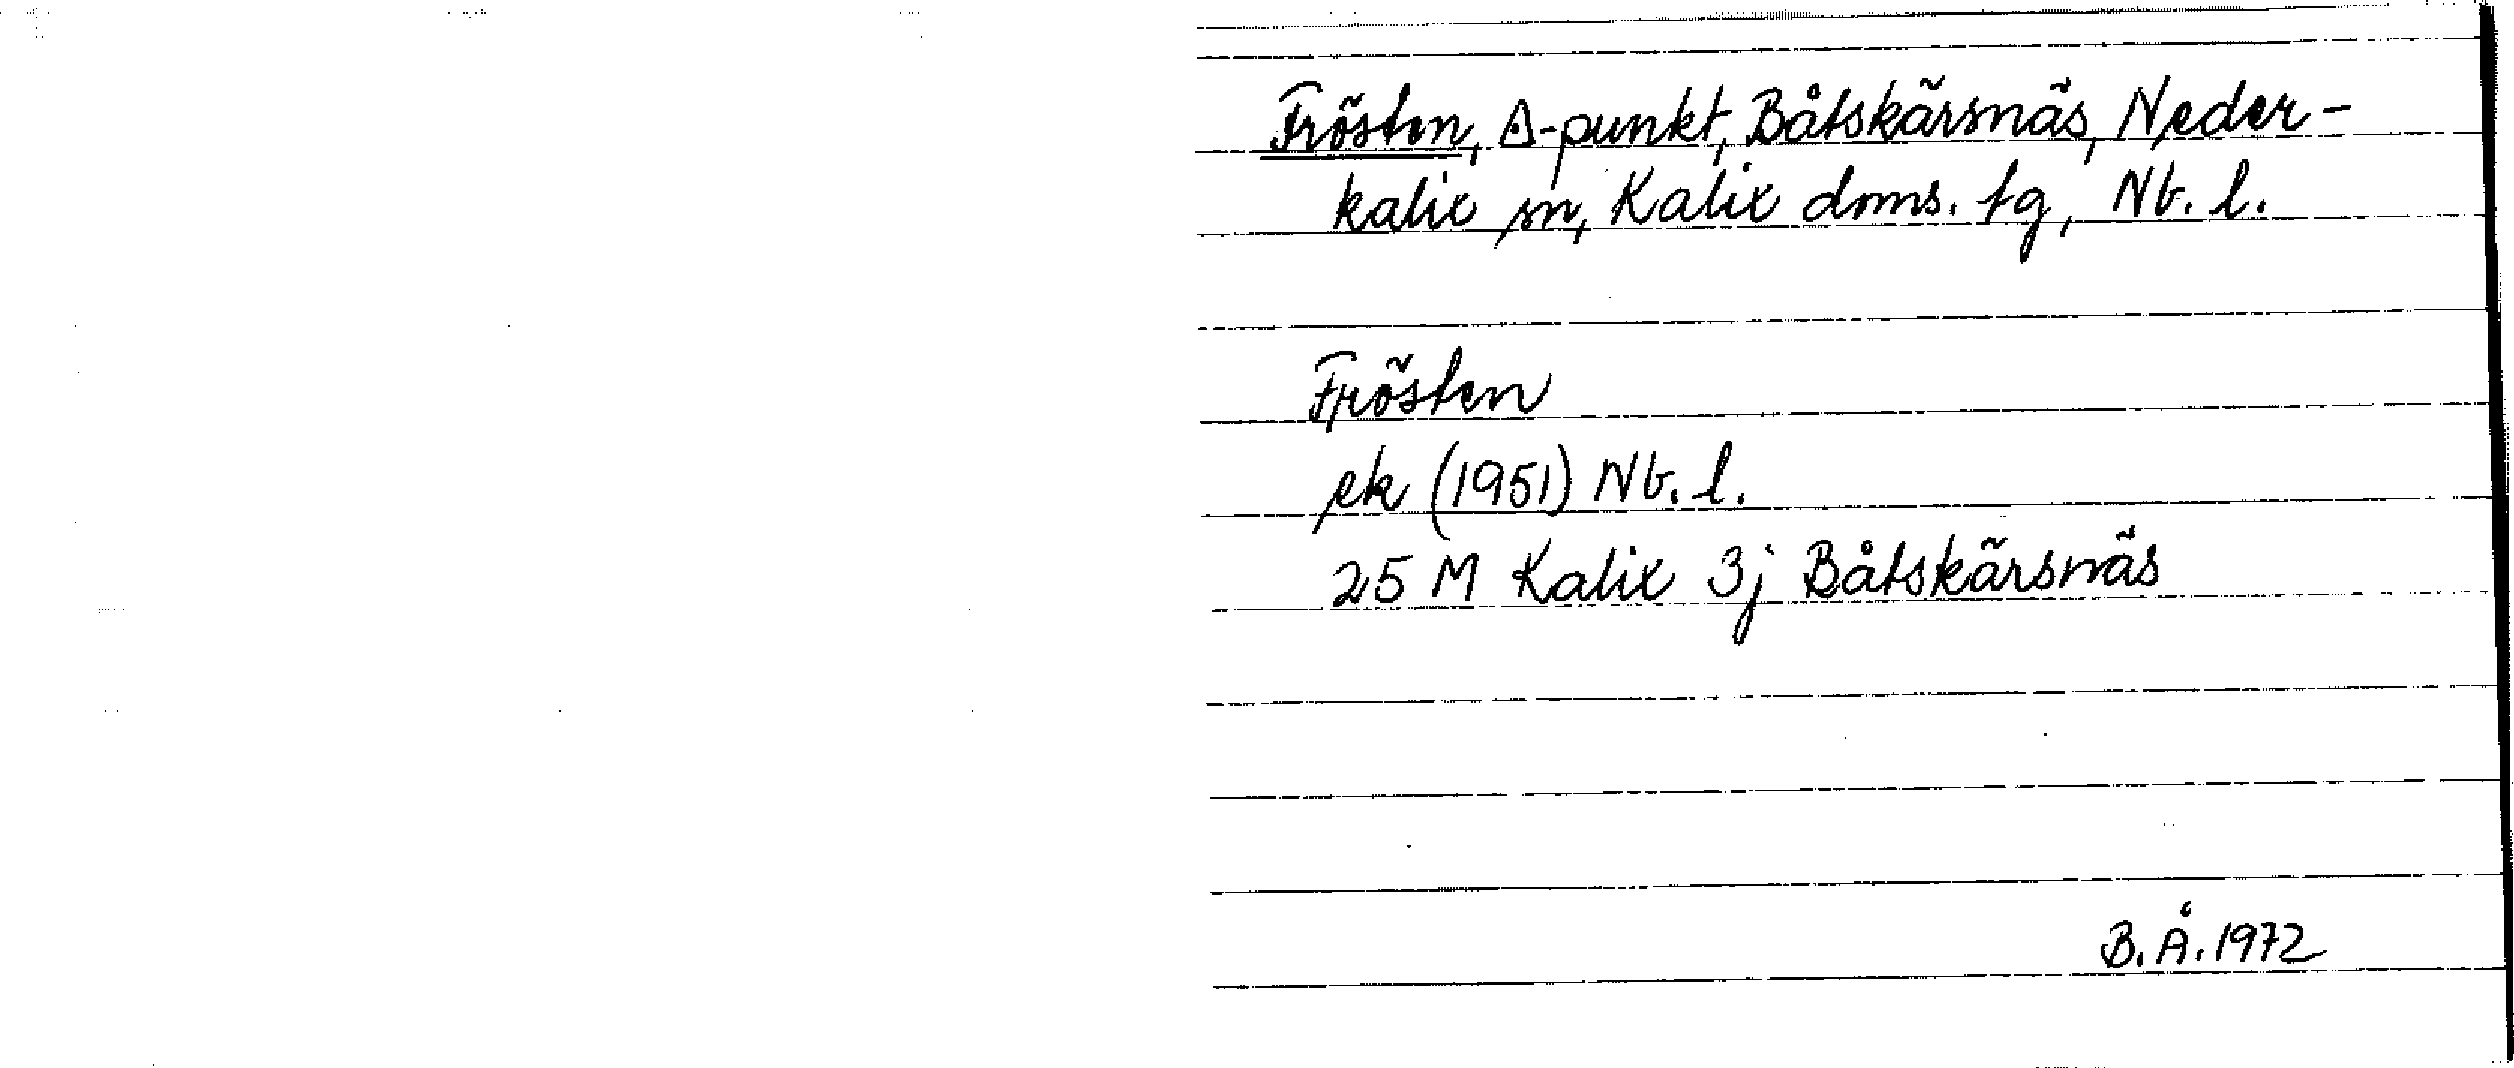 Frösten, ∆-punkt, Båtskärsnäs, Neder-
kalix sn, Kalix doms. tg, Nb. l.
Frösten
ek (1951) Nb. l.
25 M Kalix 3j Båtskärsnäs
B.Å. 1972